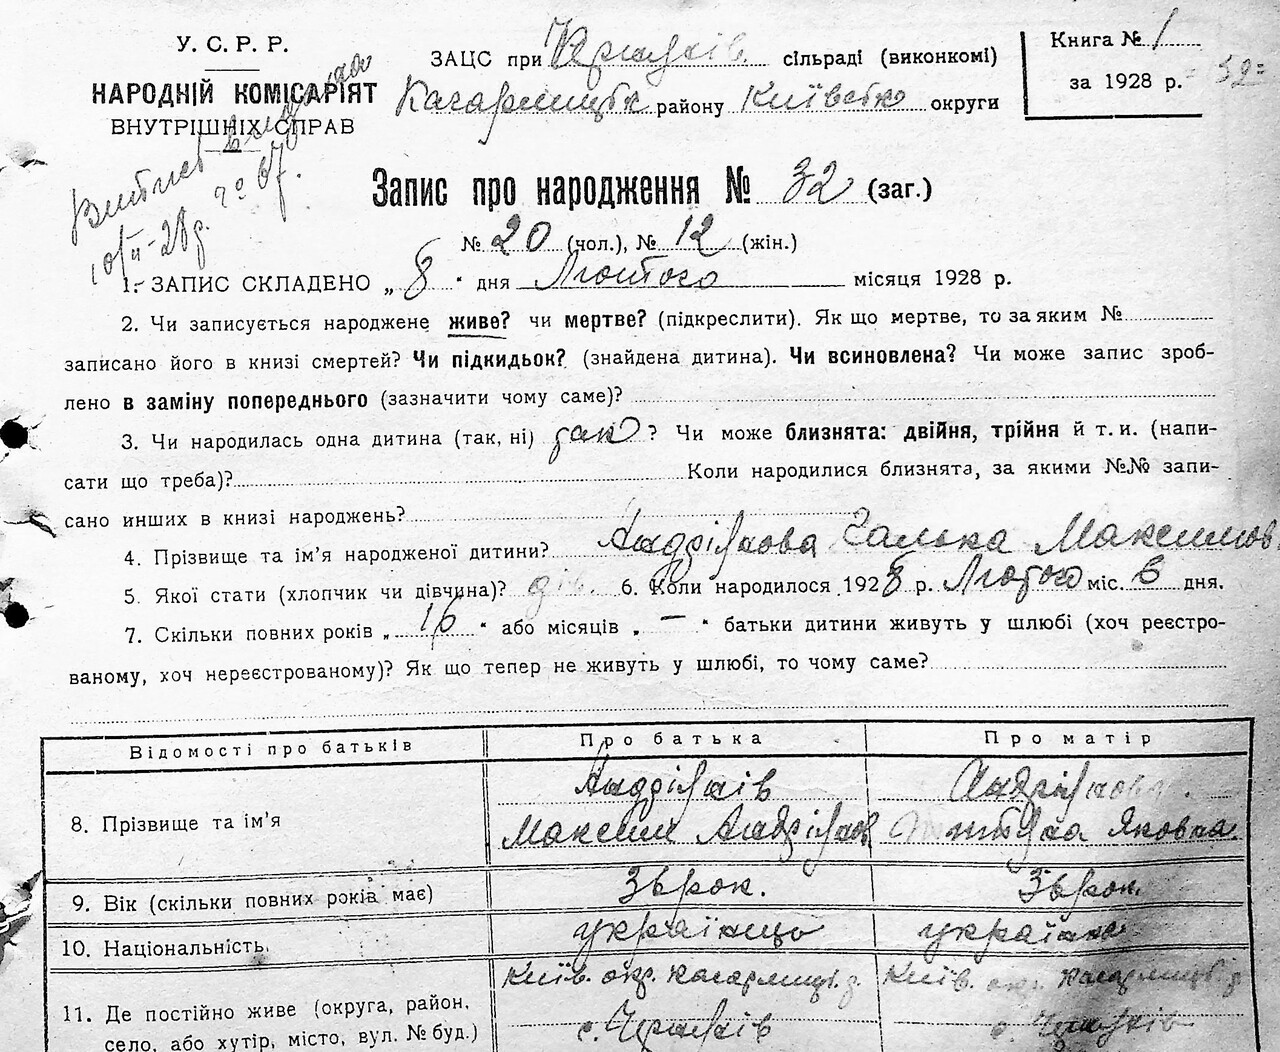 У. С. Р. Р.
НАРОДНІЙ КОМІСАРІЯТ
ВНУТРІШНІХ СПРАВ
ЗАЦС при сільраді (виконкомі)
Кагарлицьк району Київсько округи
Книга № 1
за 1928 р.
Запис про народження № 32 (заг.)
№ 20 (чол.), № 12 (жін.)
1. ЗАПИС СКЛАДЕНО „ 8 " дня Лютого місяця 1928 р.
2. Чи записується народжене живе? чи мертве? (підкреслити). Як що мертве, то за яким №
записано його в книзі смертей? Чи підкидьок? (знайдена дитина). Чи всиновлена? Чи може запис зроб-
лено в заміну попереднього (зазначити чому саме)?
3. Чи народилась одна дитина (так, ні) так ? Чи може близнята: двійня, трійня й т. и. (напи-
сати що треба)? Коли народилися близнята, за якими №№ запи-
сано инших в книзі народжень?
4. Прізвище та ім'я народженої дитини? Галька Максимов
5. Якої стати (хлопчик чи дівчина)? дів. 6. Коли народилося 1928 р. Лютого міс. 6 дня.
7. Скільки повних років „ 16 " або місяців „ — " батьки дитини живуть у шлюбі (хоч реєстро-
ваному, хоч нереєстрованому)? Як що тепер не живуть у шлюбі, то чому саме?
Відомості про батьків Про батька Про матір
8. Прізвище та ім'я Максим Яковна
9. Вік (скільки повних років має) 36 рок. 36 рок.
10. Національність українць українка
11. Де постійно живе (округа, район, Київ. окр. Кагарлицьк. р. Київ. окр. Кагарлицьк. р.
село, або хутір, місто, вул. № буд.) с. с.